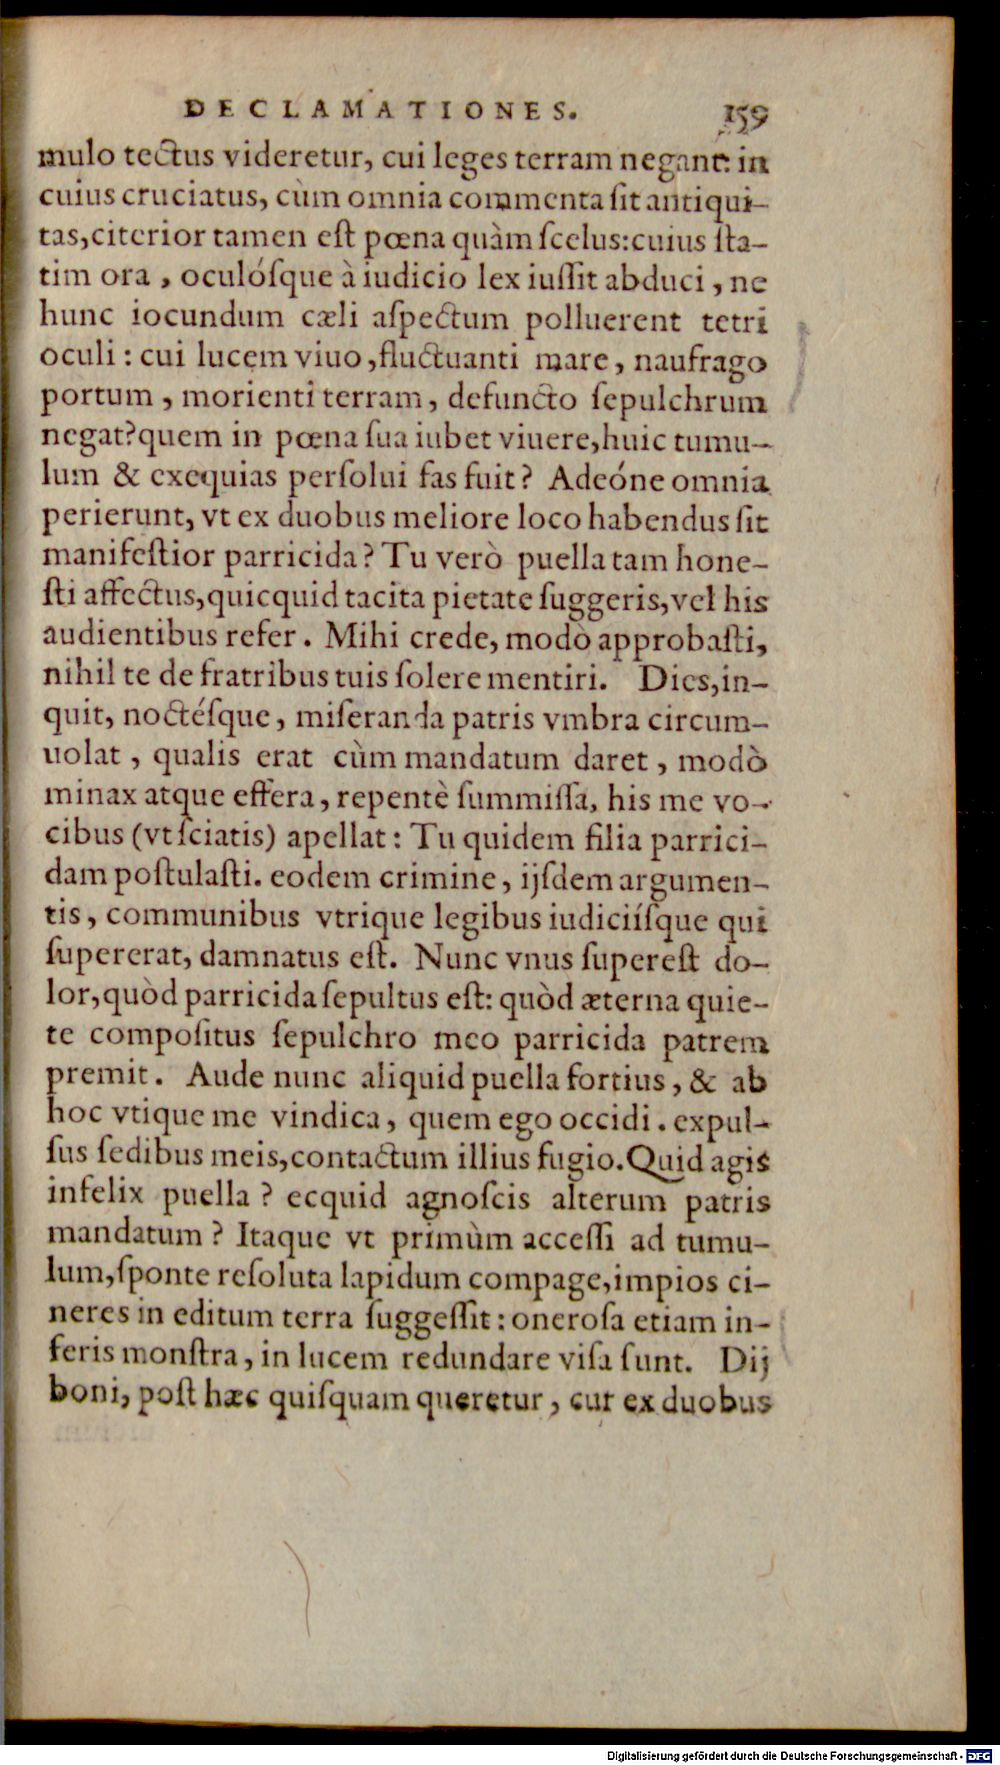 DECLAMATIONES. 159
mulo tectus videretur, cui leges terram negant: in
cuius cruciatus, cùm omnia commenta sit antiqui-
tas, citerior tamen est pœna quàm scelus: cuius sta-
tim ora, oculósque à iudicio lex iussit abduci, ne
hunc iocundum cæli aspectum polluerent tetri
oculi: cui lucem viuo, fluctuanti mare, naufrago
portum, morienti terram, defuncto sepulchrum
negat? quem in pœna sua iubet viuere, huic tumu-
lum & exequias persolui fas fuit? Adeóne omnia
perierunt, vt ex duobus meliore loco habendus sit
manifestior parricida? Tu verò puella tam hone-
sti affectus, quicquid tacita pietate suggeris, vel his
audientibus refer. Mihi crede, modò approbasti,
nihil te de fratribus tuis solere mentiri. Dies, in-
quit, noctésque, miseranda patris vmbra circum-
uolat, qualis erat cùm mandatum daret, modò
minax atque effera, repentè summissa, his me vo-
cibus (vt sciatis) apellat: Tu quidem filia parrici-
dam postulasti. eodem crimine, ijsdem argumen-
tis, communibus vtrique legibus iudiciísque qui
supererat, damnatus est. Nunc vnus superest do-
lor, quòd parricida sepultus est: quòd æterna quie-
te compositus sepulchro meo parricida patrem
premit. Aude nunc aliquid puella fortius, & ab
hoc vtique me vindica, quem ego occidi. expul-
sus sedibus meis, contactum illius fugio. Quid agis
infelix puella? ecquid agnoscis alterum patris
mandatum? Itaque vt primùm accessi ad tumu-
lum, sponte resoluta lapidum compage, impios ci-
neres in editum terra suggessit: onerosa etiam in-
feris monstra, in lucem redundare visa sunt. Dij
boni, post hæc quisquam queretur, cur ex duobus
Digitalisierung gefördert durch die Deutsche Forschungsgemeinschaft - DFG